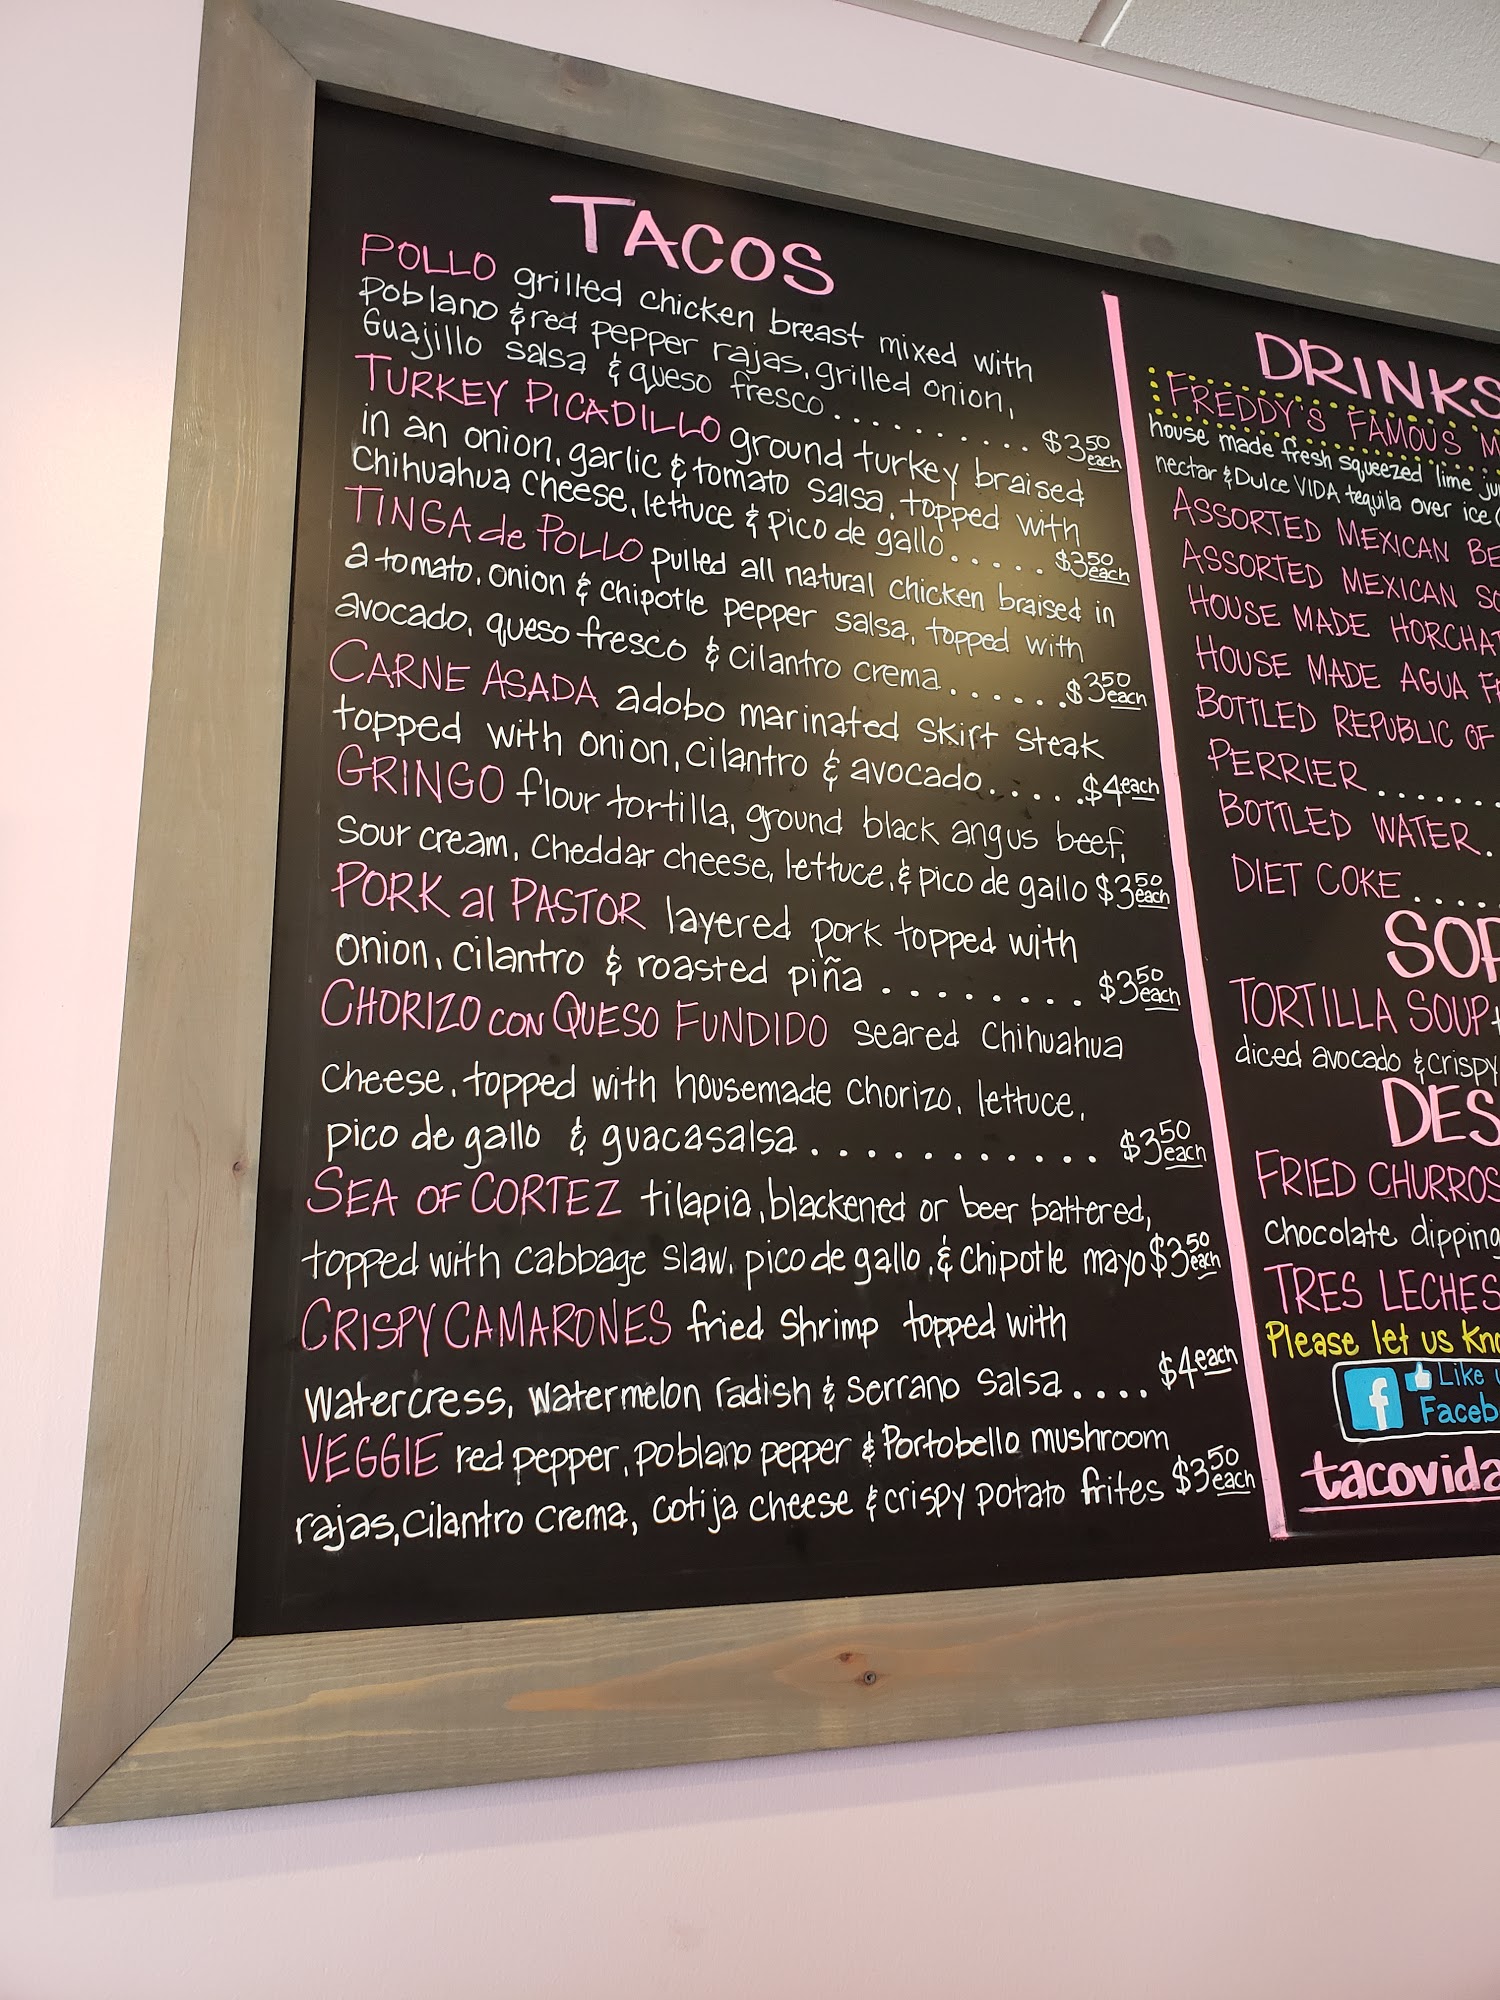 TACOS
POLLO grilled chicken breast mixed with
Poblano & red pepper rajas, grilled onion,
Guajillo salsa & queso fresco.......... $3.50 each
TURKEY PICADILLO ground turkey braised
in an onion, garlic & tomato salsa, topped with
Chihuahua Cheese, lettuce & pico de gallo..... $3.50 each
TINGA de POLLO pulled all natural chicken braised in
a tomato, onion & chipotle pepper salsa, topped with
avocado, queso fresco & cilantro crema...... $3.50 each
CARNE ASADA adobo marinated skirt steak
topped with onion, cilantro & avocado..... $4 each
GRINGO flour tortilla, ground black angus beef,
sour cream, cheddar cheese, lettuce, & pico de gallo $3.50 each
PORK al PASTOR layered pork topped with
onion, cilantro & roasted piña ........ $3.50 each
CHORIZO CON QUESO FUNDIDO seared Chihuahua
Cheese, topped with housemade Chorizo, lettuce,
pico de gallo & guacasalsa ............ $3.50 each
SEA OF CORTEZ tilapia, blackened or beer battered,
topped with cabbage slaw, pico de gallo, & chipotle mayo $3.50 each
CRISPY CAMARONES fried shrimp topped with
watercress, watermelon radish & serrano salsa.... $4 each
VEGGIE red pepper, poblano pepper & Portobello mushroom
rajas, cilantro crema, cotija cheese & crispy potato frites $3.50 each
DRINKS
FREDDY'S FAMOUS
house made fresh squeezed lime
nectar & Dulce VIDA tequila over ice
ASSORTED MEXICAN
ASSORTED MEXICAN
HOUSE MADE
HOUSE MADE AGUA
BOTTLED REPUBLIC OF
PERRIER.......
BOTTLED WATER.
DIET COKE.....
TORTILLA SOUP
diced avocado & crispy
FRIED CHURROS
chocolate dipping
TRES LECHES
Please let us
Like
tacovida